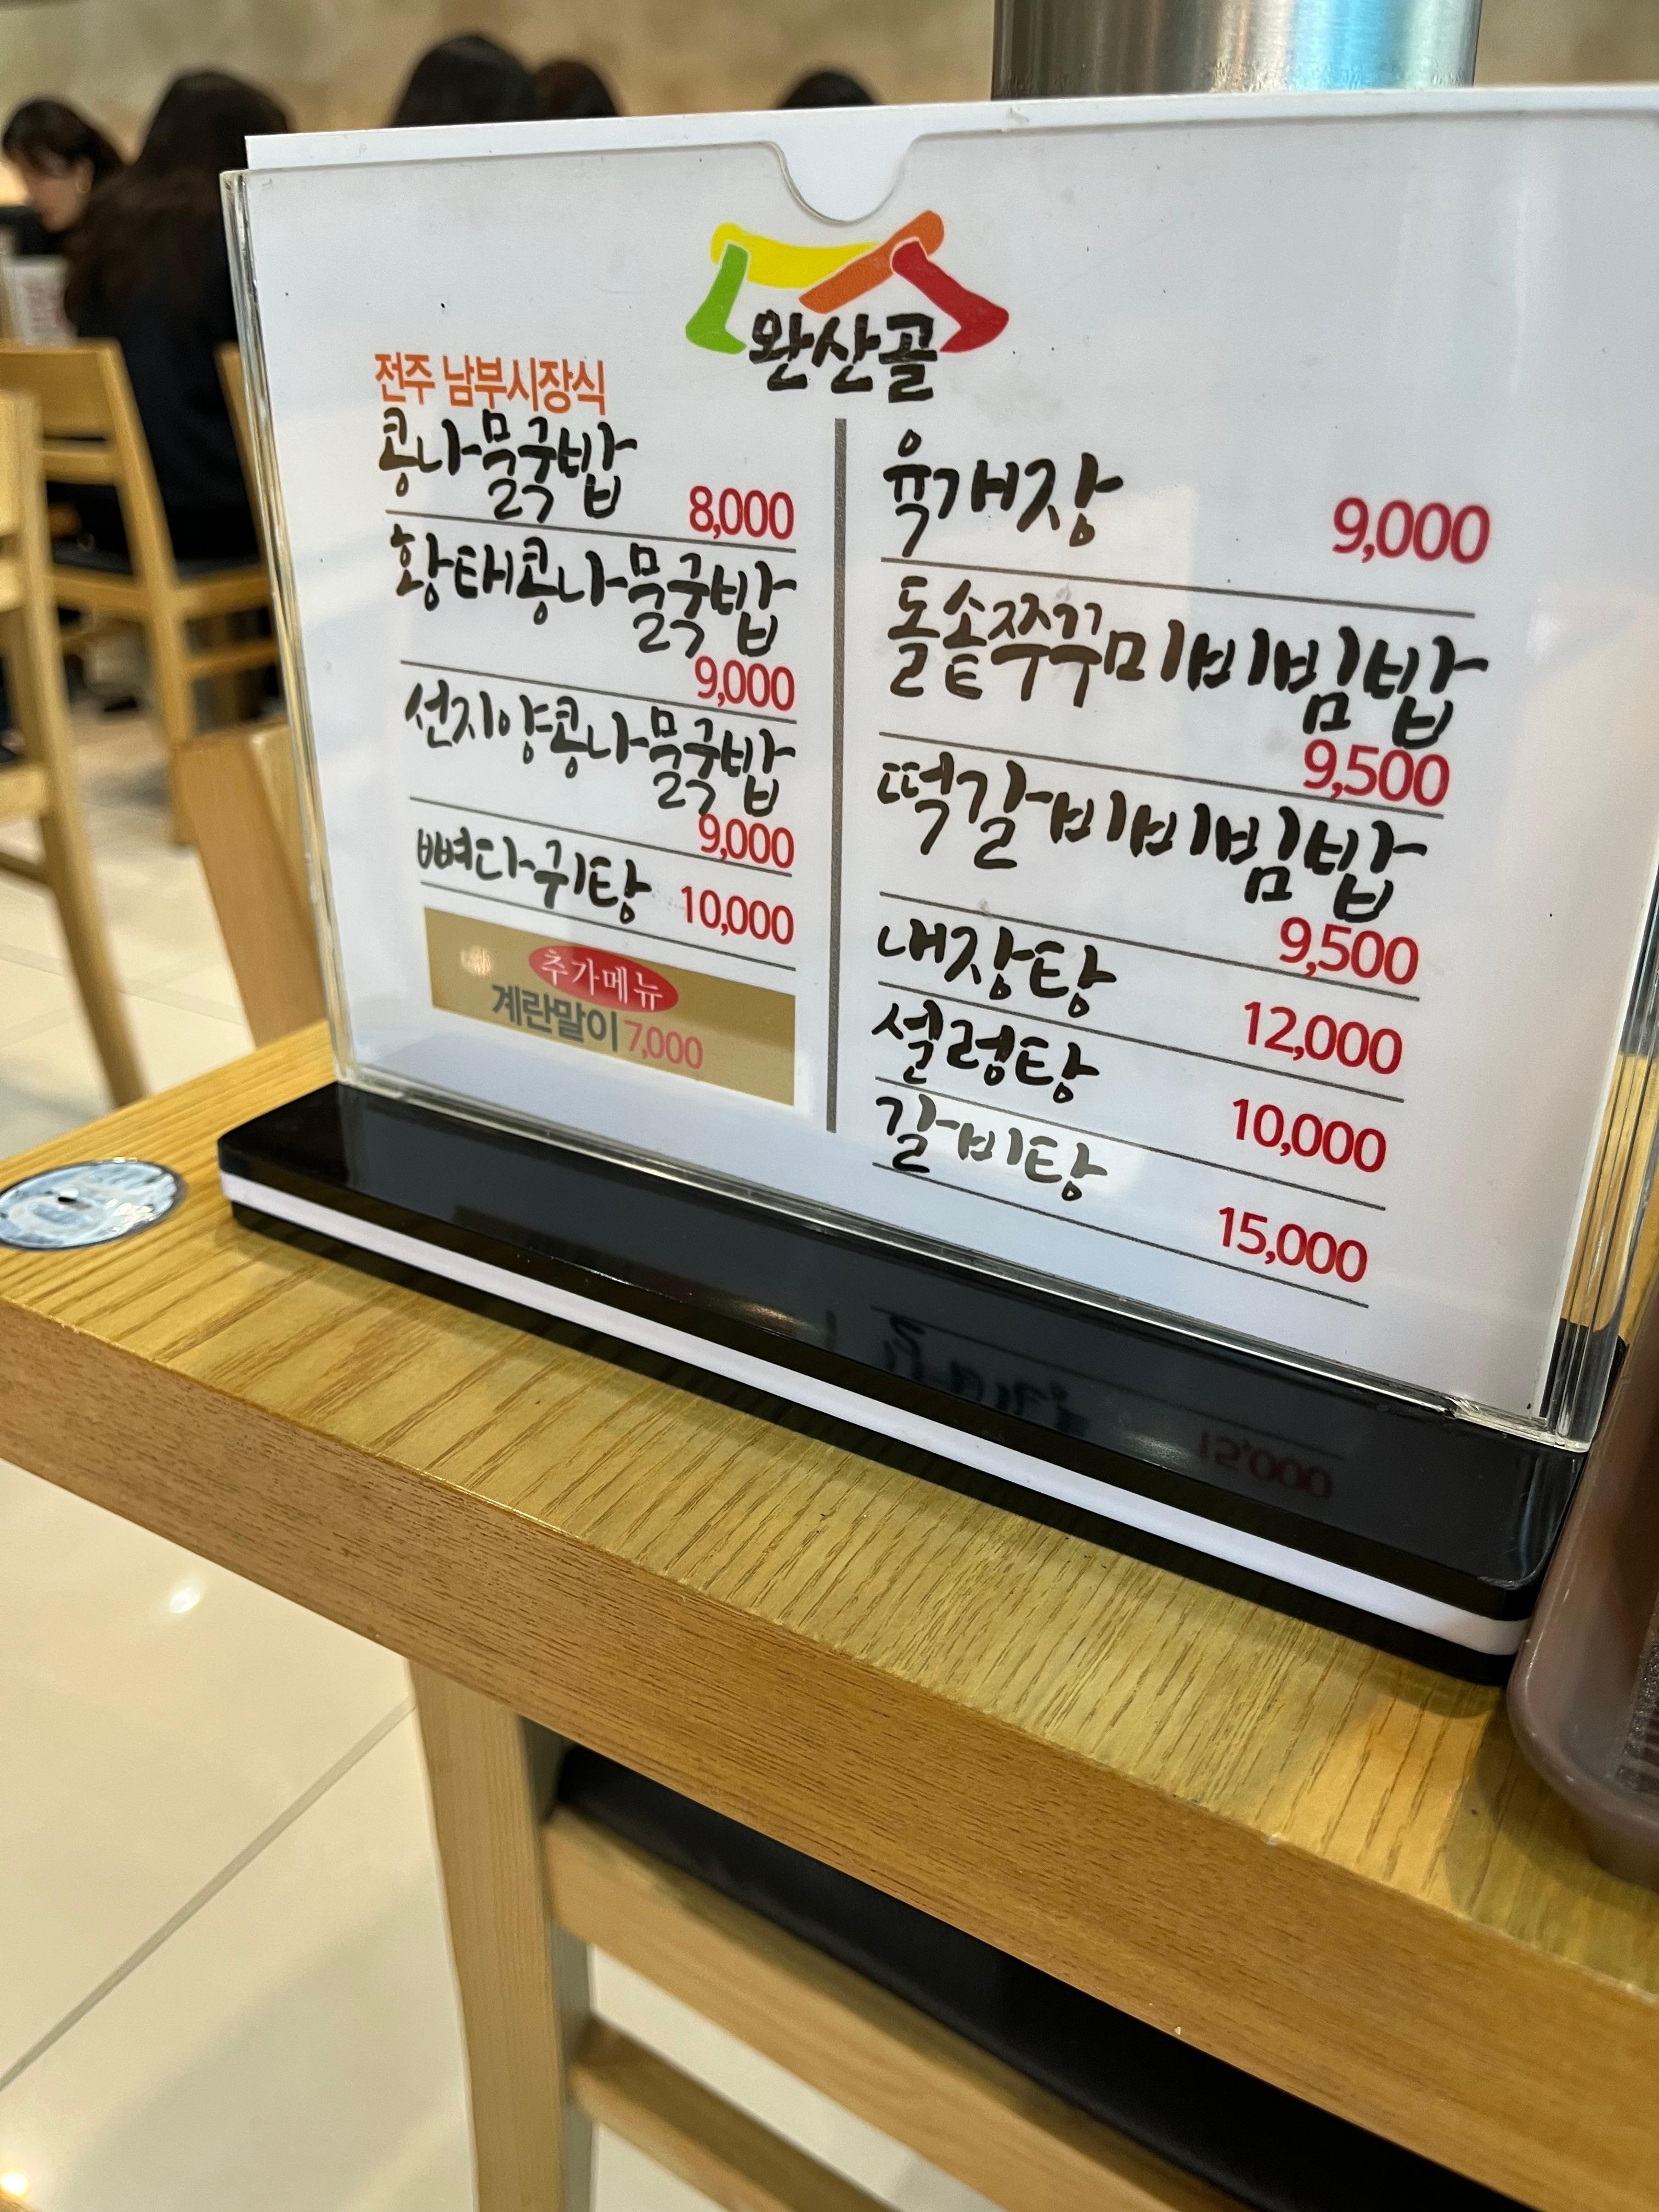 완산골
전주 남부시장식
콩나물국밥
8,000
황태콩나물국밥
9,000
선지양콩나물국밥
9,000
뼈다귀탕 10,000
추가메뉴
계란말이 7,000
육개장 9,000
돌솥쭈꾸미비빔밥
9,500
떡갈비비빔밥
9,500
내장탕 12,000
설렁탕 10,000
갈비탕 15,000